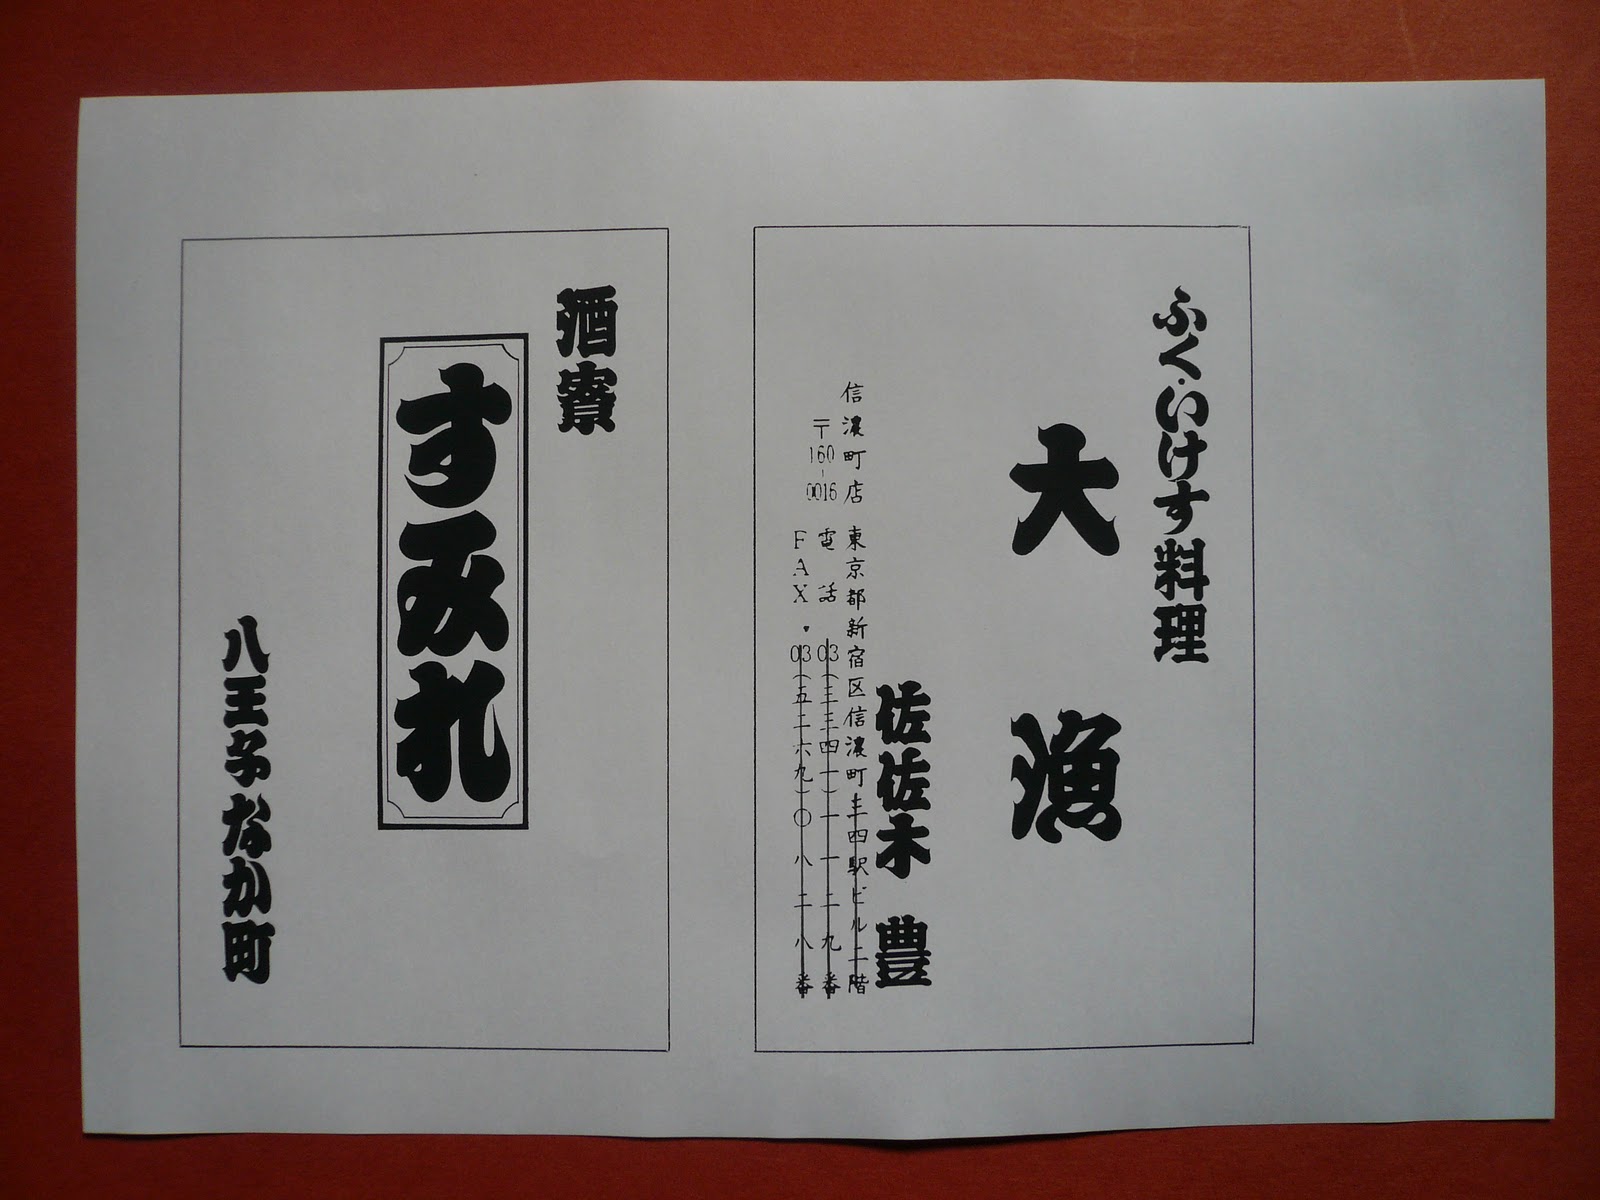 ふく・いけす料理
大漁
佐佐木 豊
信濃町店 東京都新宿区信濃町三四駅ビル二階
〒160-0016 電話 03(三三四一)一一二九番
FAX・03(五二六九)〇八二八番
酒寮
すみれ
八王子なか町